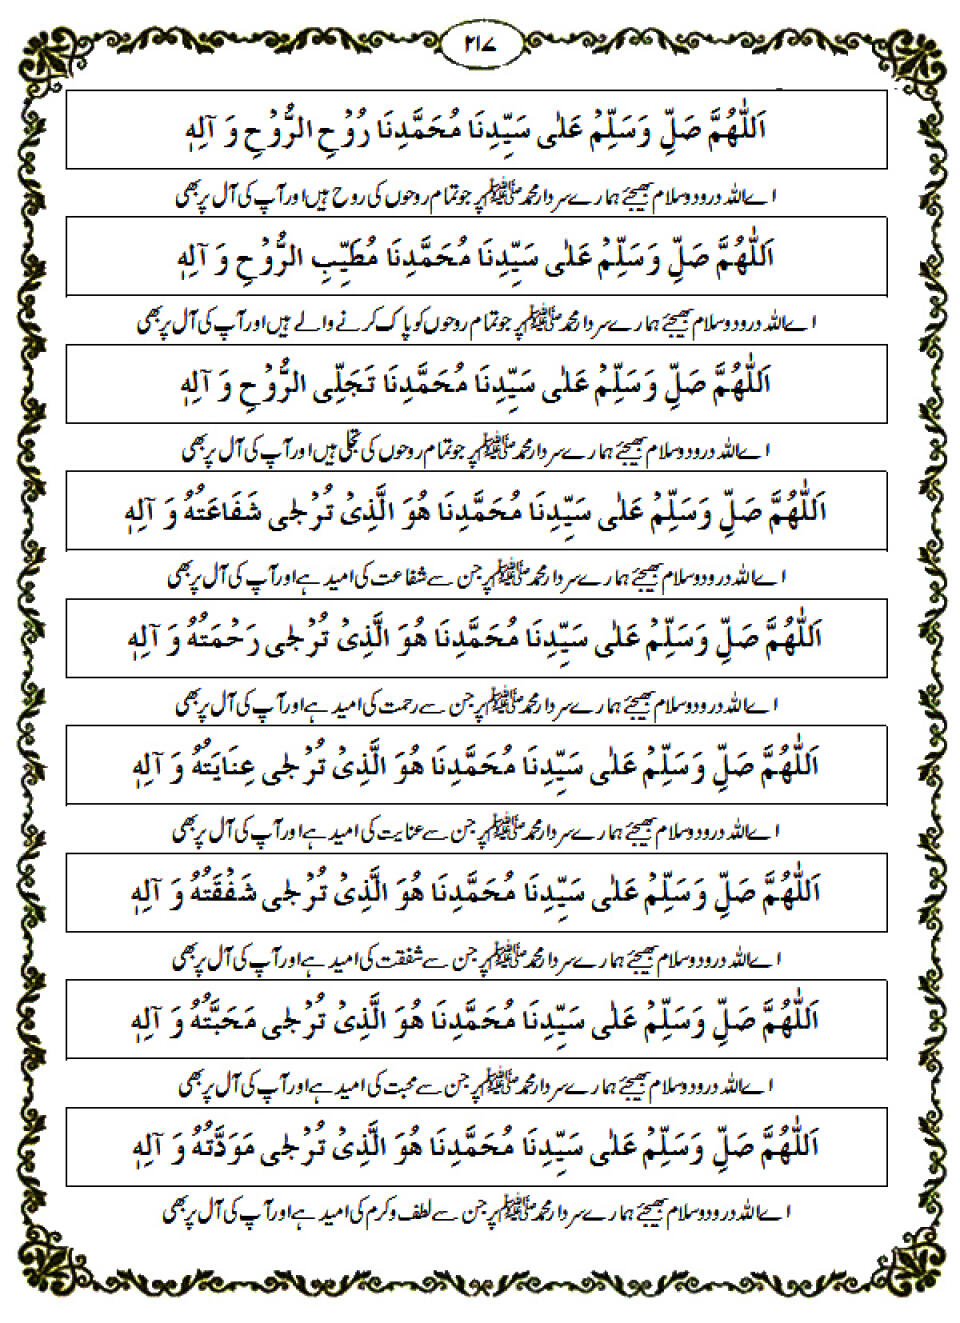 ۲۱۷
اَللّٰهُمَّ صَلِّ وَسَلِّمْ عَلٰی سَيِّدِنَا مُحَمَّدِنَا رُوْحِ الرُّوْحِ وَ آلِهٖ
اے اللہ درود وسلام بھیجئے ہمارے سردار محمد ﷺ پر جو تمام روحوں کی روح ہیں اور آپ کی آل پر بھی
اَللّٰهُمَّ صَلِّ وَسَلِّمْ عَلٰی سَيِّدِنَا مُحَمَّدِنَا مُطَيِّبِ الرُّوْحِ وَ آلِهٖ
اے اللہ درود وسلام بھیجئے ہمارے سردار محمد ﷺ پر جو تمام روحوں کو پاک کرنے والے ہیں اور آپ کی آل پر بھی
اَللّٰهُمَّ صَلِّ وَسَلِّمْ عَلٰی سَيِّدِنَا مُحَمَّدِنَا تَجَلِّی الرُّوْحِ وَ آلِهٖ
اے اللہ درود وسلام بھیجئے ہمارے سردار محمد ﷺ پر جو تمام روحوں کی تجلی ہیں اور آپ کی آل پر بھی
اَللّٰهُمَّ صَلِّ وَسَلِّمْ عَلٰی سَيِّدِنَا مُحَمَّدِنَا هُوَ الَّذِیْ تُرْجٰی شَفَاعَتُهُ وَ آلِهٖ
اے اللہ درود وسلام بھیجئے ہمارے سردار محمد ﷺ پر جن سے شفاعت کی امید ہے اور آپ کی آل پر بھی
اَللّٰهُمَّ صَلِّ وَسَلِّمْ عَلٰی سَيِّدِنَا مُحَمَّدِنَا هُوَ الَّذِیْ تُرْجٰی رَحْمَتُهُ وَ آلِهٖ
اے اللہ درود وسلام بھیجئے ہمارے سردار محمد ﷺ پر جن سے رحمت کی امید ہے اور آپ کی آل پر بھی
اَللّٰهُمَّ صَلِّ وَسَلِّمْ عَلٰی سَيِّدِنَا مُحَمَّدِنَا هُوَ الَّذِیْ تُرْجٰی عِنَايَتُهُ وَ آلِهٖ
اے اللہ درود وسلام بھیجئے ہمارے سردار محمد ﷺ پر جن سے عنایت کی امید ہے اور آپ کی آل پر بھی
اَللّٰهُمَّ صَلِّ وَسَلِّمْ عَلٰی سَيِّدِنَا مُحَمَّدِنَا هُوَ الَّذِیْ تُرْجٰی شَفْقَتُهُ وَ آلِهٖ
اے اللہ درود وسلام بھیجئے ہمارے سردار محمد ﷺ پر جن سے شفقت کی امید ہے اور آپ کی آل پر بھی
اَللّٰهُمَّ صَلِّ وَسَلِّمْ عَلٰی سَيِّدِنَا مُحَمَّدِنَا هُوَ الَّذِیْ تُرْجٰی مَحَبَّتُهُ وَ آلِهٖ
اے اللہ درود وسلام بھیجئے ہمارے سردار محمد ﷺ پر جن سے محبت کی امید ہے اور آپ کی آل پر بھی
اَللّٰهُمَّ صَلِّ وَسَلِّمْ عَلٰی سَيِّدِنَا مُحَمَّدِنَا هُوَ الَّذِیْ تُرْجٰی مَوَدَّتُهُ وَ آلِهٖ
اے اللہ درود وسلام بھیجئے ہمارے سردار محمد ﷺ پر جن سے لطف وکرم کی امید ہے اور آپ کی آل پر بھی